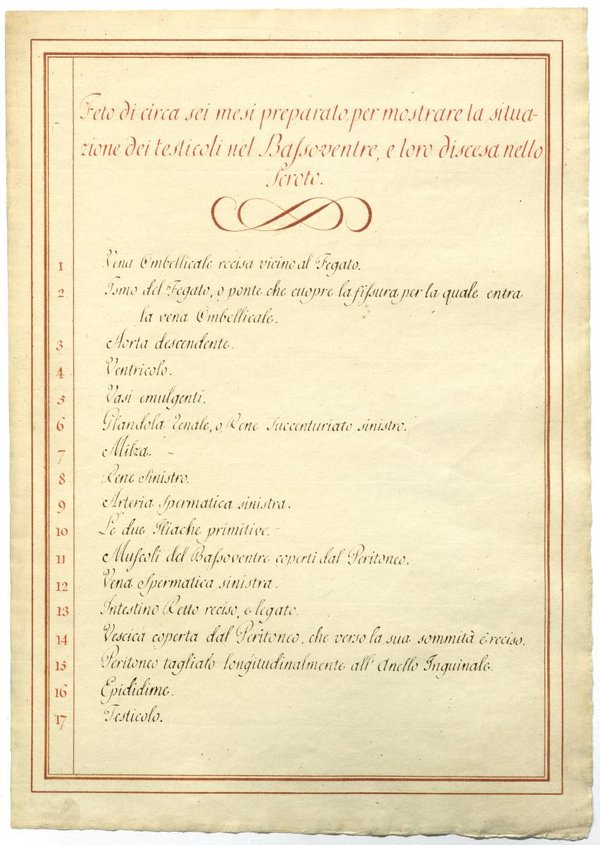 Feto di circa sei mesi preparato per mostrare la situa-
zione dei testicoli nel Baſsoventre, e loro discesa nello
Scroto.
1 Vena Ombellicale recisa vicino al Fegato.
2 Ismo del Fegato, o ponte che cuopre la fiſsura per la quale entra
la vena Ombellicale.
3 Aorta descendente.
4 Ventricolo.
5 Vasi emulgenti.
6 Glandola Renale, o Rene Succenturiato sinistro.
7 Milza.
8 Rene Sinistro.
9 Arteria Spermatica sinistra.
10 Le due Iliache primitive.
11 Muſcoli del Baſsoventre coperti dal Peritoneo.
12 Vena Spermatica sinistra.
13 Intestino Retto reciso, e legato.
14 Vescica coperta dal Peritoneo, che verso la sua sommità è reciso.
15 Peritoneo tagliato longitudinalmente all' Anello Inguinale.
16 Epididime.
17 Testicolo.